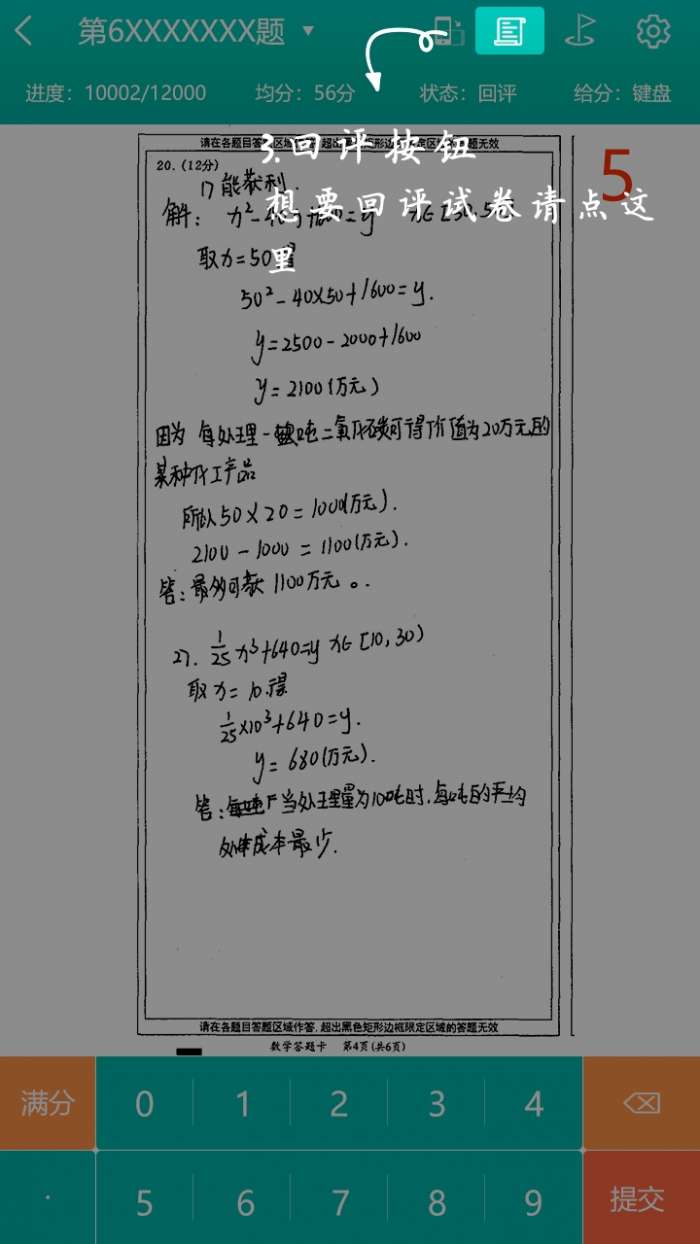 第6XXXXXXX题
进度：10002/12000 均分：56分 状态：回评 给分：键盘
请在各题目答题区域
3.回评按钮
想要回评试卷请点这
里
5
20.(12分)
1) 能获利.
解：
取x=50
50²-40×50+1600=y.
y=2500-2000+1600
y=2100(万元)
因为 每处理一吨二氧化碳可得价值为20万元的
某种化工产品
所以50×20=1000(万元).
2100-1000=1100(万元).
答：最多可获1100万元。.
27. 1/25 x³+640=y x∈[10,30)
取x=10.得
1/25×10³+640=y.
y=680(万元).
答： 当处理量为10吨时,每吨的平均
处理成本最少.
请在各题目答题区域作答,超出黑色矩形边框限定区域的答题无效
数学答题卡 第4页(共6页)
满分 0 1 2 3 4
· 5 6 7 8 9 提交